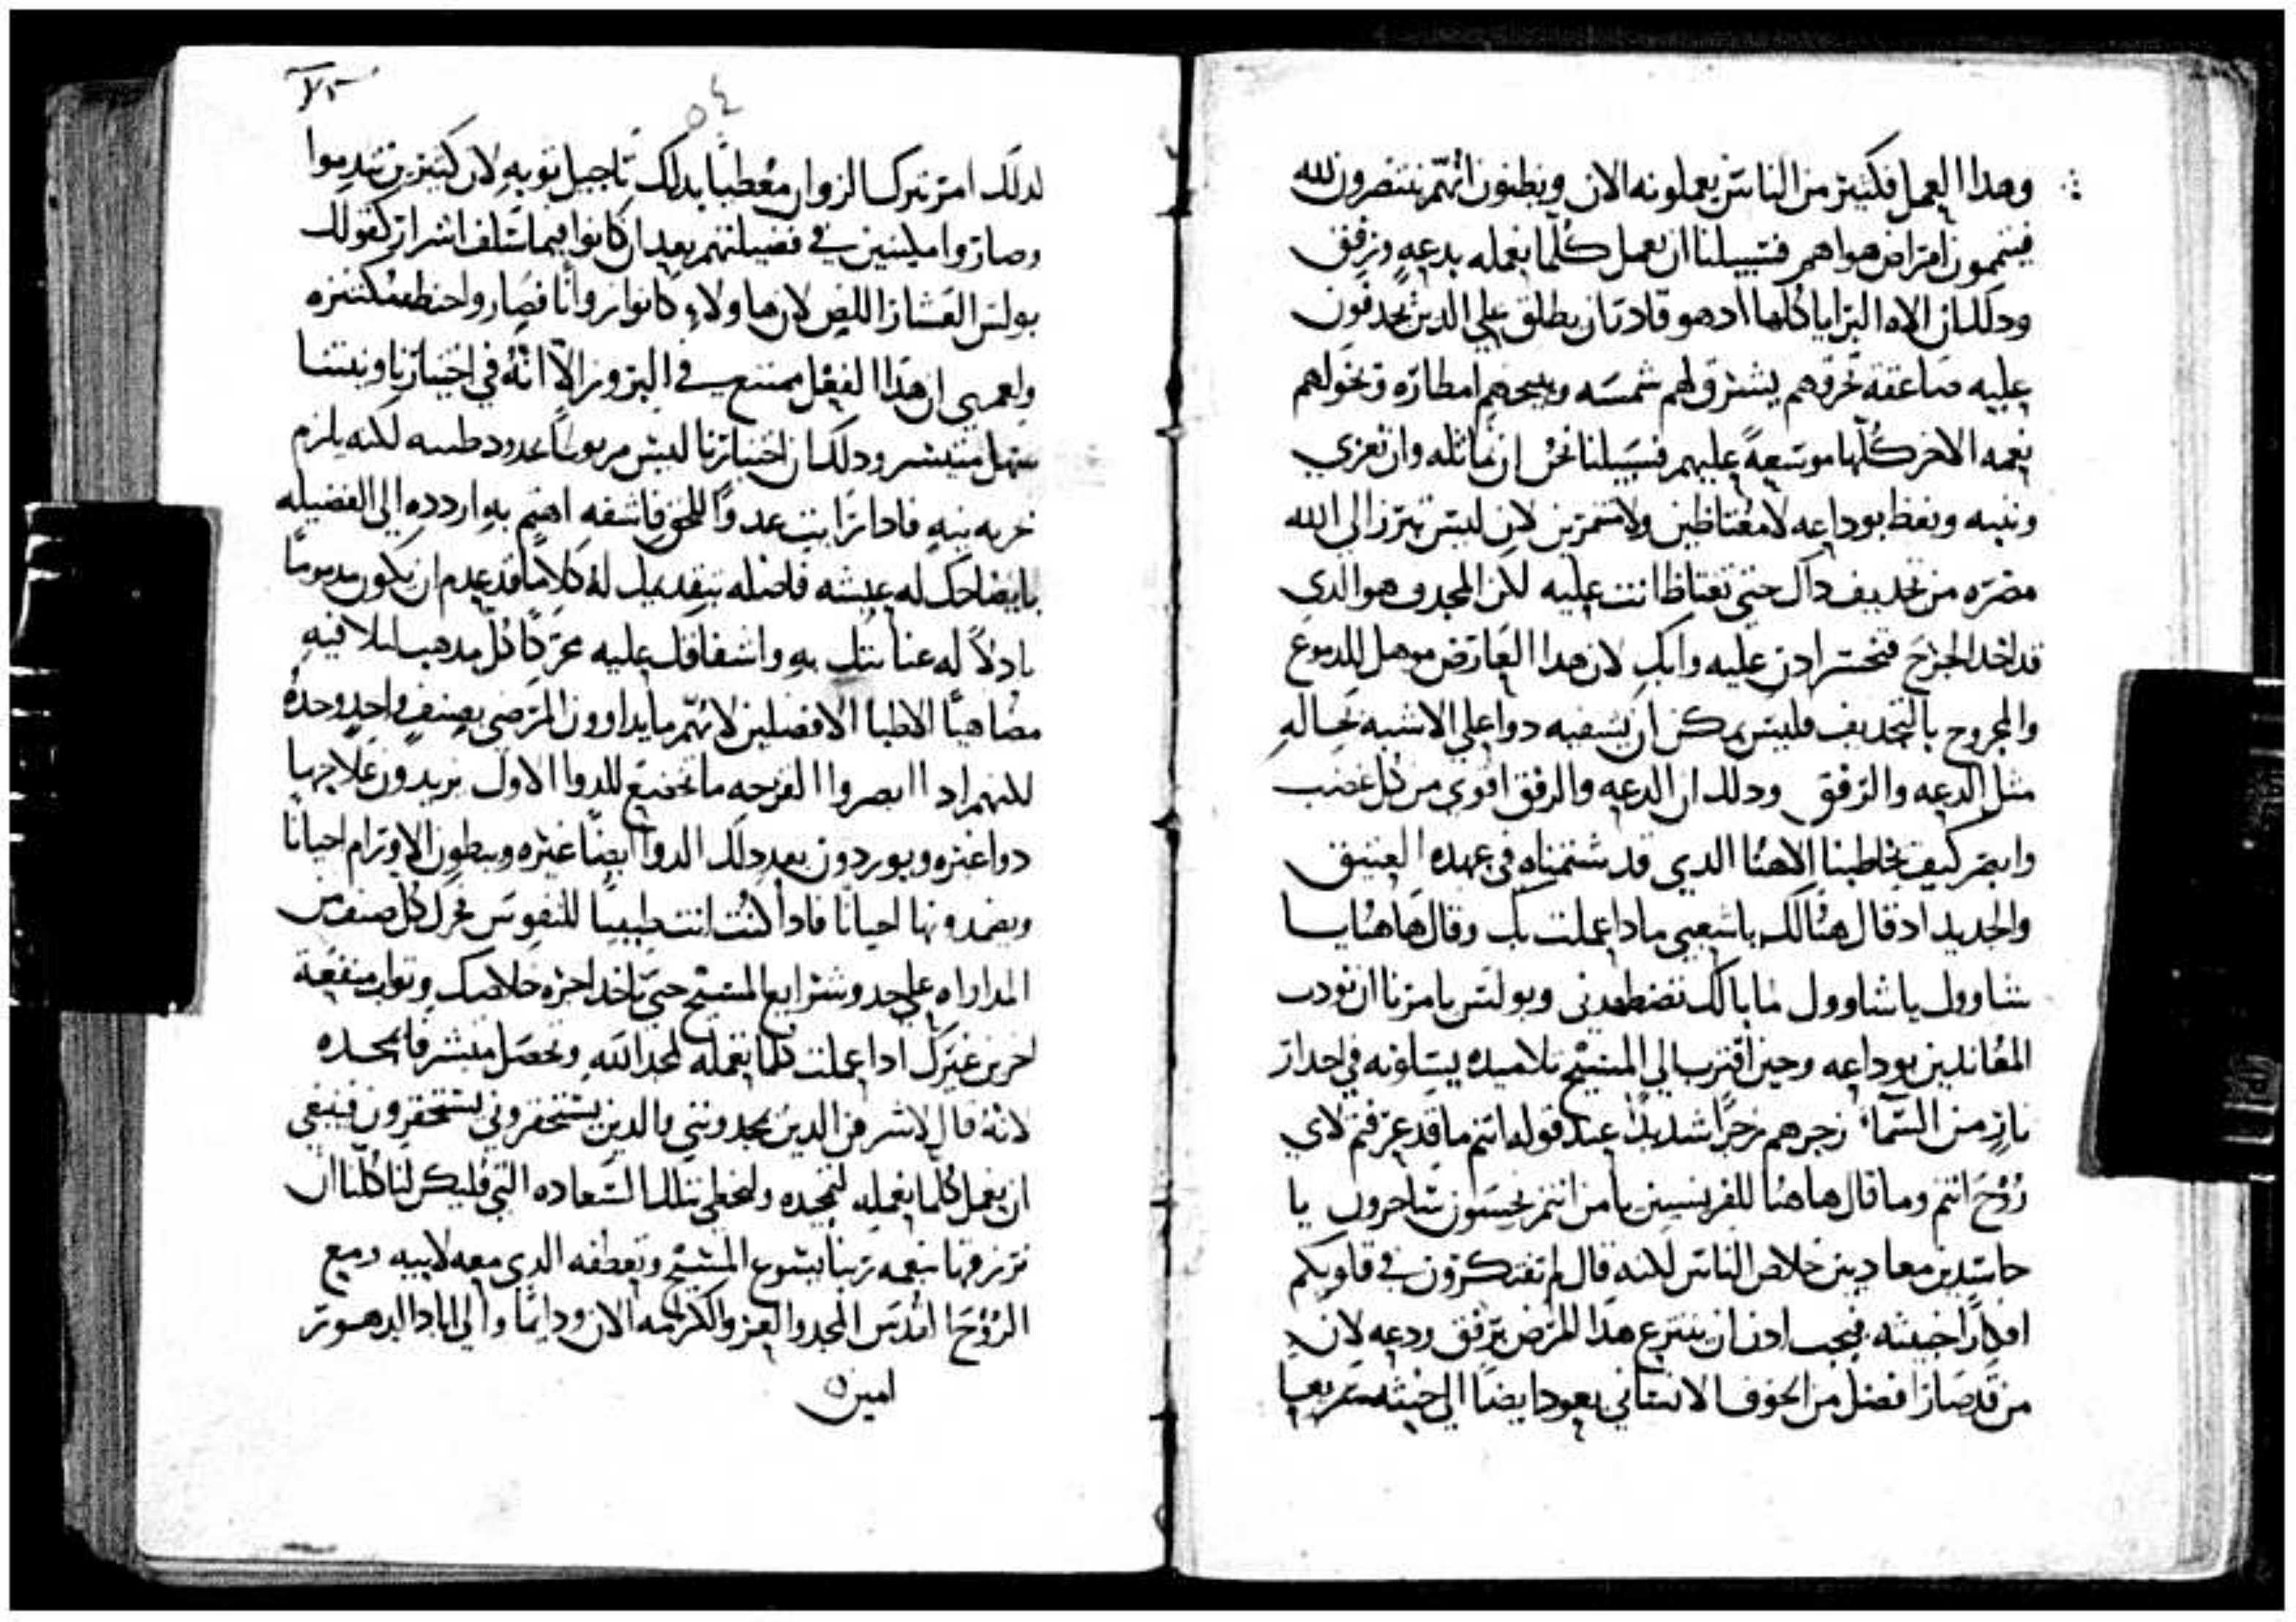 وهدا العمل فكثير من الناس يعملونه الان ويظنون انهم ينتصرون لله
فيتممون امراض هواهم فسبيلنا ان نعمل كلما نعمله بدعه ورفق
ودلك ان الاه البرايا كلها ادهو قادر ان يطلق علي الدين يجدفون
عليه صاعقة تحرقهم يشرق لهم شمسه ويمحهم امطاره وتخولهم
نعمه الاخر كلها موسعة عليهم فسبيلنا نحن ان نماثله وان نعزي
وننبه ونعظ بوداعه لا مغتاظين ولا متمرين لان ليس تبرز الي الله
مضره من تجديف داك حتي تغتاظ انت عليه لكن المجدف هو الدي
قد اخد الجرح فتحسر ادن عليه وابك لان هدا العارض موهل للدموع
والمجروح بالتجديف فليس يمكن ان يشفيه دوا علي الاشبه بحاله
مثل الدعه والرفق ودلك ان الدعه والرفق اقوي من كل غضب
وابصر كيف يخاطبنا الاهنا الدي قد شتمناه في عهده العتيق
والجديد اد قال هنالك يا شعبي مادا عملت بك وقال هاهنا يا
شاوول يا شاوول ما بالك تضطهدني وبولس يامرنا ان نودب
المعاندين بوداعه وحين اقترب الي المسيح تلاميده يسلونه في احدار
نار من السما زجرهم زجرا شديدا عند قوله انتم ما قد عرفتم لاي
روح انتم وما قال هاهنا للفريسيين يا من انتم نجسون ساحرون يا
حاسدين معادين خلاص الناس لكنه قال لم تفتكرون في قلوبكم
افكارا خبيثه فيجب ادن ان ينتزع هدا المرض برفق ودعه لان
من قد صار افضل من الخوف الانساني يعود ايضا الي خبثه سريعا
٥٤
لدلك امر بترك الزوان معطيا بدلك تاجيل توبه لان كثيرين تندموا
وصاروا مليين في فضيلتهم بعد ان كانوا فيما سلف اشرار كقولك
بولس العشار اللص لان هاولاء كانوا زوانا فصاروا حنطه مكتنزه
ولعمري ان هدا الفعل ممتنع في البزور الا انه في اختيارنا ونيتنا
سهل متيسر ودلك ان اختيارنا ليس مربوطا بحدود طبيعه لكنه يلزم
حريه نيه فادا رايت عدوا للحق فاشفه اهتم به اردده الي الفضيله
بايضاحك له عيشه فاضله بتقديمك له كلاما قد عدم ان يكون مدموما
بادلا له عنايتك به واشفاقك عليه محركا كل مدهب لتلافيه
مضاهيا الاطبا الافضلين لانهم ما يداوون المرضي بصنف واحد وحده
لكنهم ادا ابصروا القرحه ما تخضع للدوا الاول يزيدون علاجها
دوا غيره ويوردون بعد دلك الدوا ايضا غيره ويبطون الاورام احيانا
ويضمدونها احيانا فادا كنت انت طبيبا للنفوس حرك كل صنف من
المداواه علي حدو شرايع المسيح حتي تاخد اجره خلاصك وثواب منفعة
اخرين غيرك ادا عملت كلما تعمله لمجد الله وتحصل متشرفا بمجده
لانه قال لاشرفن الدين يمجدونني والدين يستحقروني يستحقرون فينبغي
ان نعمل كلما نعمله لتمجيده ولنحظي بتلك السعاده التي فليكن لنا كلنا ان
نرزقها بنعمه ربنا يسوع المسيح وتعطفه الدي معه لابيه ومع
الروح القدس المجد والعز والكرامه الان ودايما والي اباد الدهور
امين